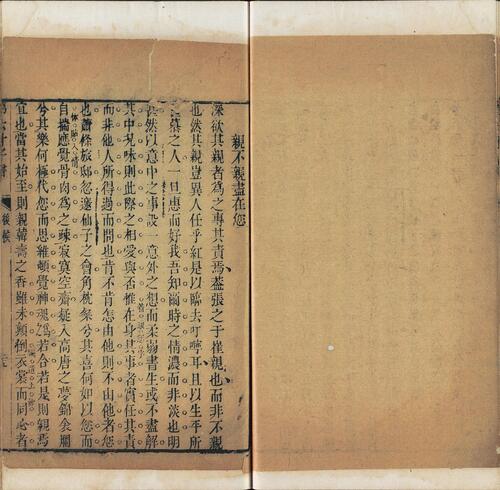 親不親盡在您
深欲其親者為之專其責焉葢張之于崔親也而非不親
也然其親豈異人任乎紅是以臨去叮嚀耳且以生平所
慕之人一旦惠而好我吾知爾時之情濃而非淡也明
然以意中之事設一意外之想而柔弱書生或不盡解
其中況味則此際之相愛與否惟在身其事者實任其責
而非他人所得過而問也肯不肯怎由他則不由他者您
也蕭條旅邸忽邀仙子之會角枕粲兮其喜何如以您而
自揣應覺骨肉為之疎寂寞空齋挺入高唐之夢錦衾爛
兮其樂何極代您而思維頓覺神魂為若合若是則親焉
宜也當其始至則親韓壽之香雖未顛倒衣裳而同心者
六才子書
後候